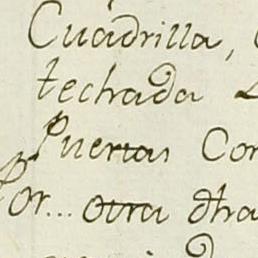 Cuadrilla,
techrada
Puertas Con
Por... otra dha